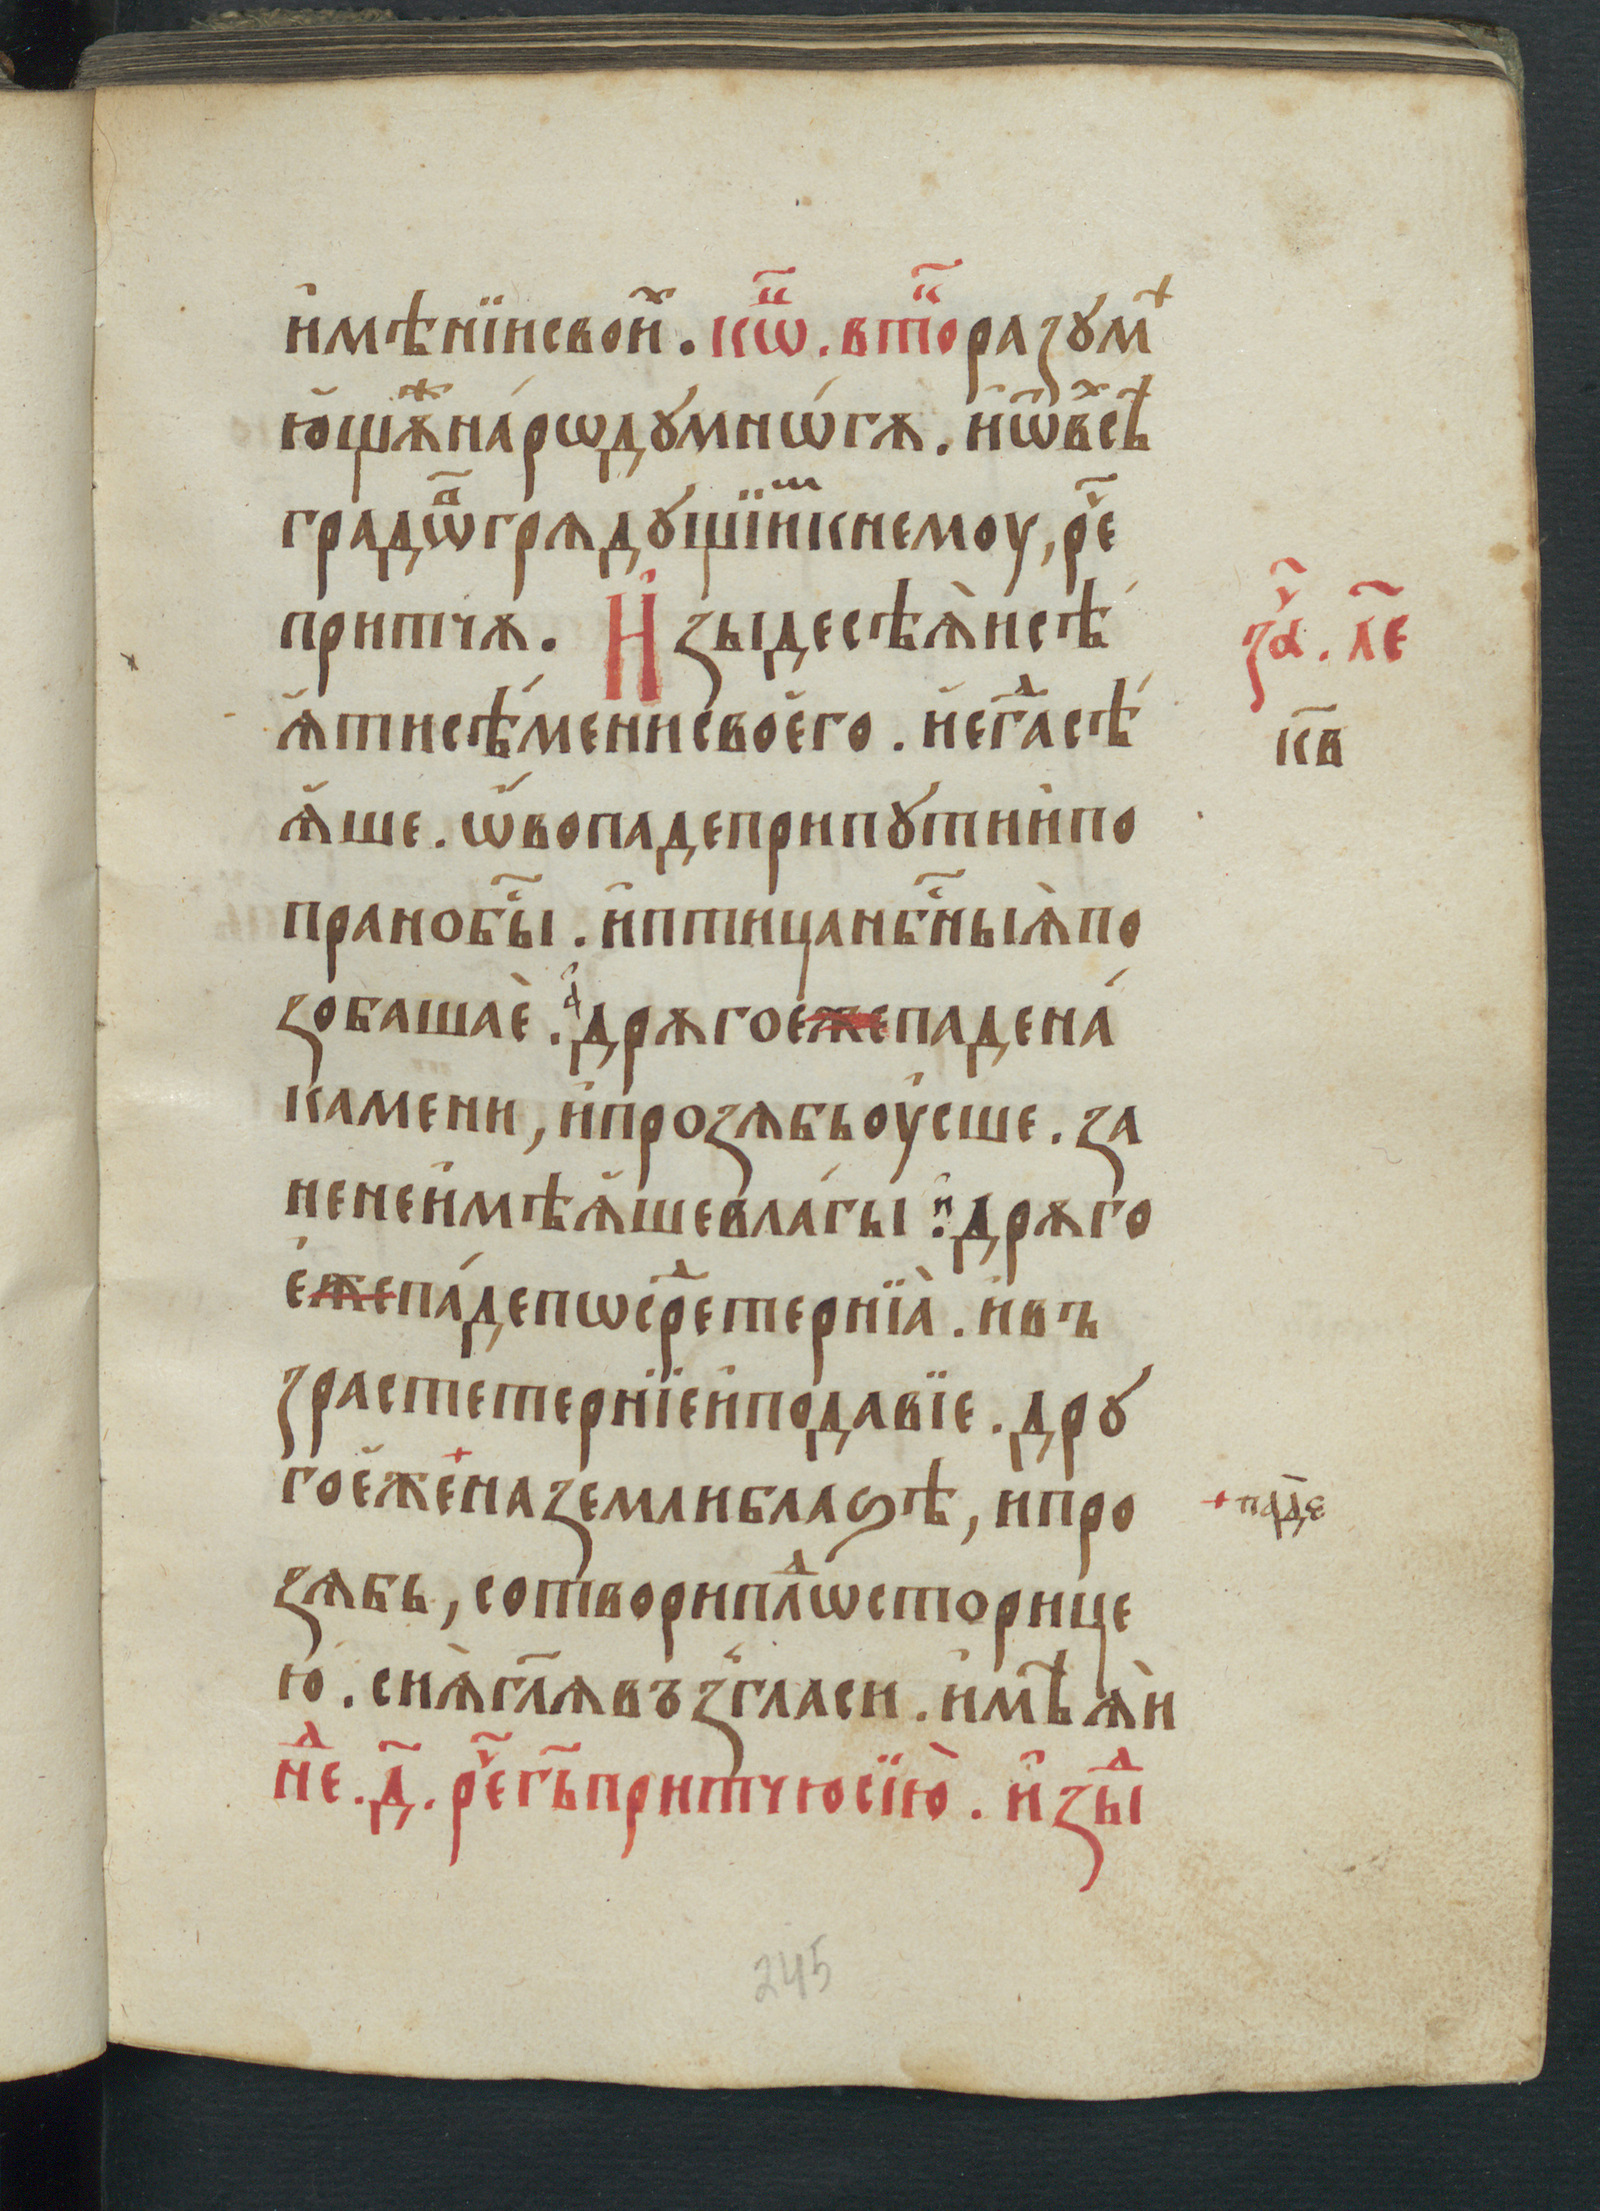 и҆мѣнїисвои҆х. кѡ҃н. вто҃ора зꙋмѣ
ю҆щѫжнародꙋмнѡ́гѫ. и҆ѿвсѣх
градѡ҃вгрѧдꙋщїи҆мкнемоу, рче҃
притчѫ. И҆зыдесѣѧ̀исѣ
ѧ҆тисѣ́менисвоего. и҆егдⷣасѣ
ѧ҆ше. ѡ҆вопадеприпꙋтии҆по
пранобы҃сⷭ. и҆птицанбⷭ҃ныѧ̀по
зобашаѐ. а҆дрѫгоежепадена́
камени, и҆прозѧбьоу҆сше. за
ненеи҆мѣѧ҆шевла́гы. и҆дрѫго
ежепа́депѡсредⷣетернїа̀. ивъ
растетернїеи҆подавїе. дрꙋ
гоежѐназемлиблаѕѣ, ипро
+ паде
зѧбь, сотворипло҃дⷣѡсторице
ю. сиѧ̀глѧ҃възгласи. и҆мѣѧ̀и
не҃дⷣ. д҃. рче҃гь҃притчюсїю̀. и҆зыⷣ
за҃ч. ле҃
кв҃
245